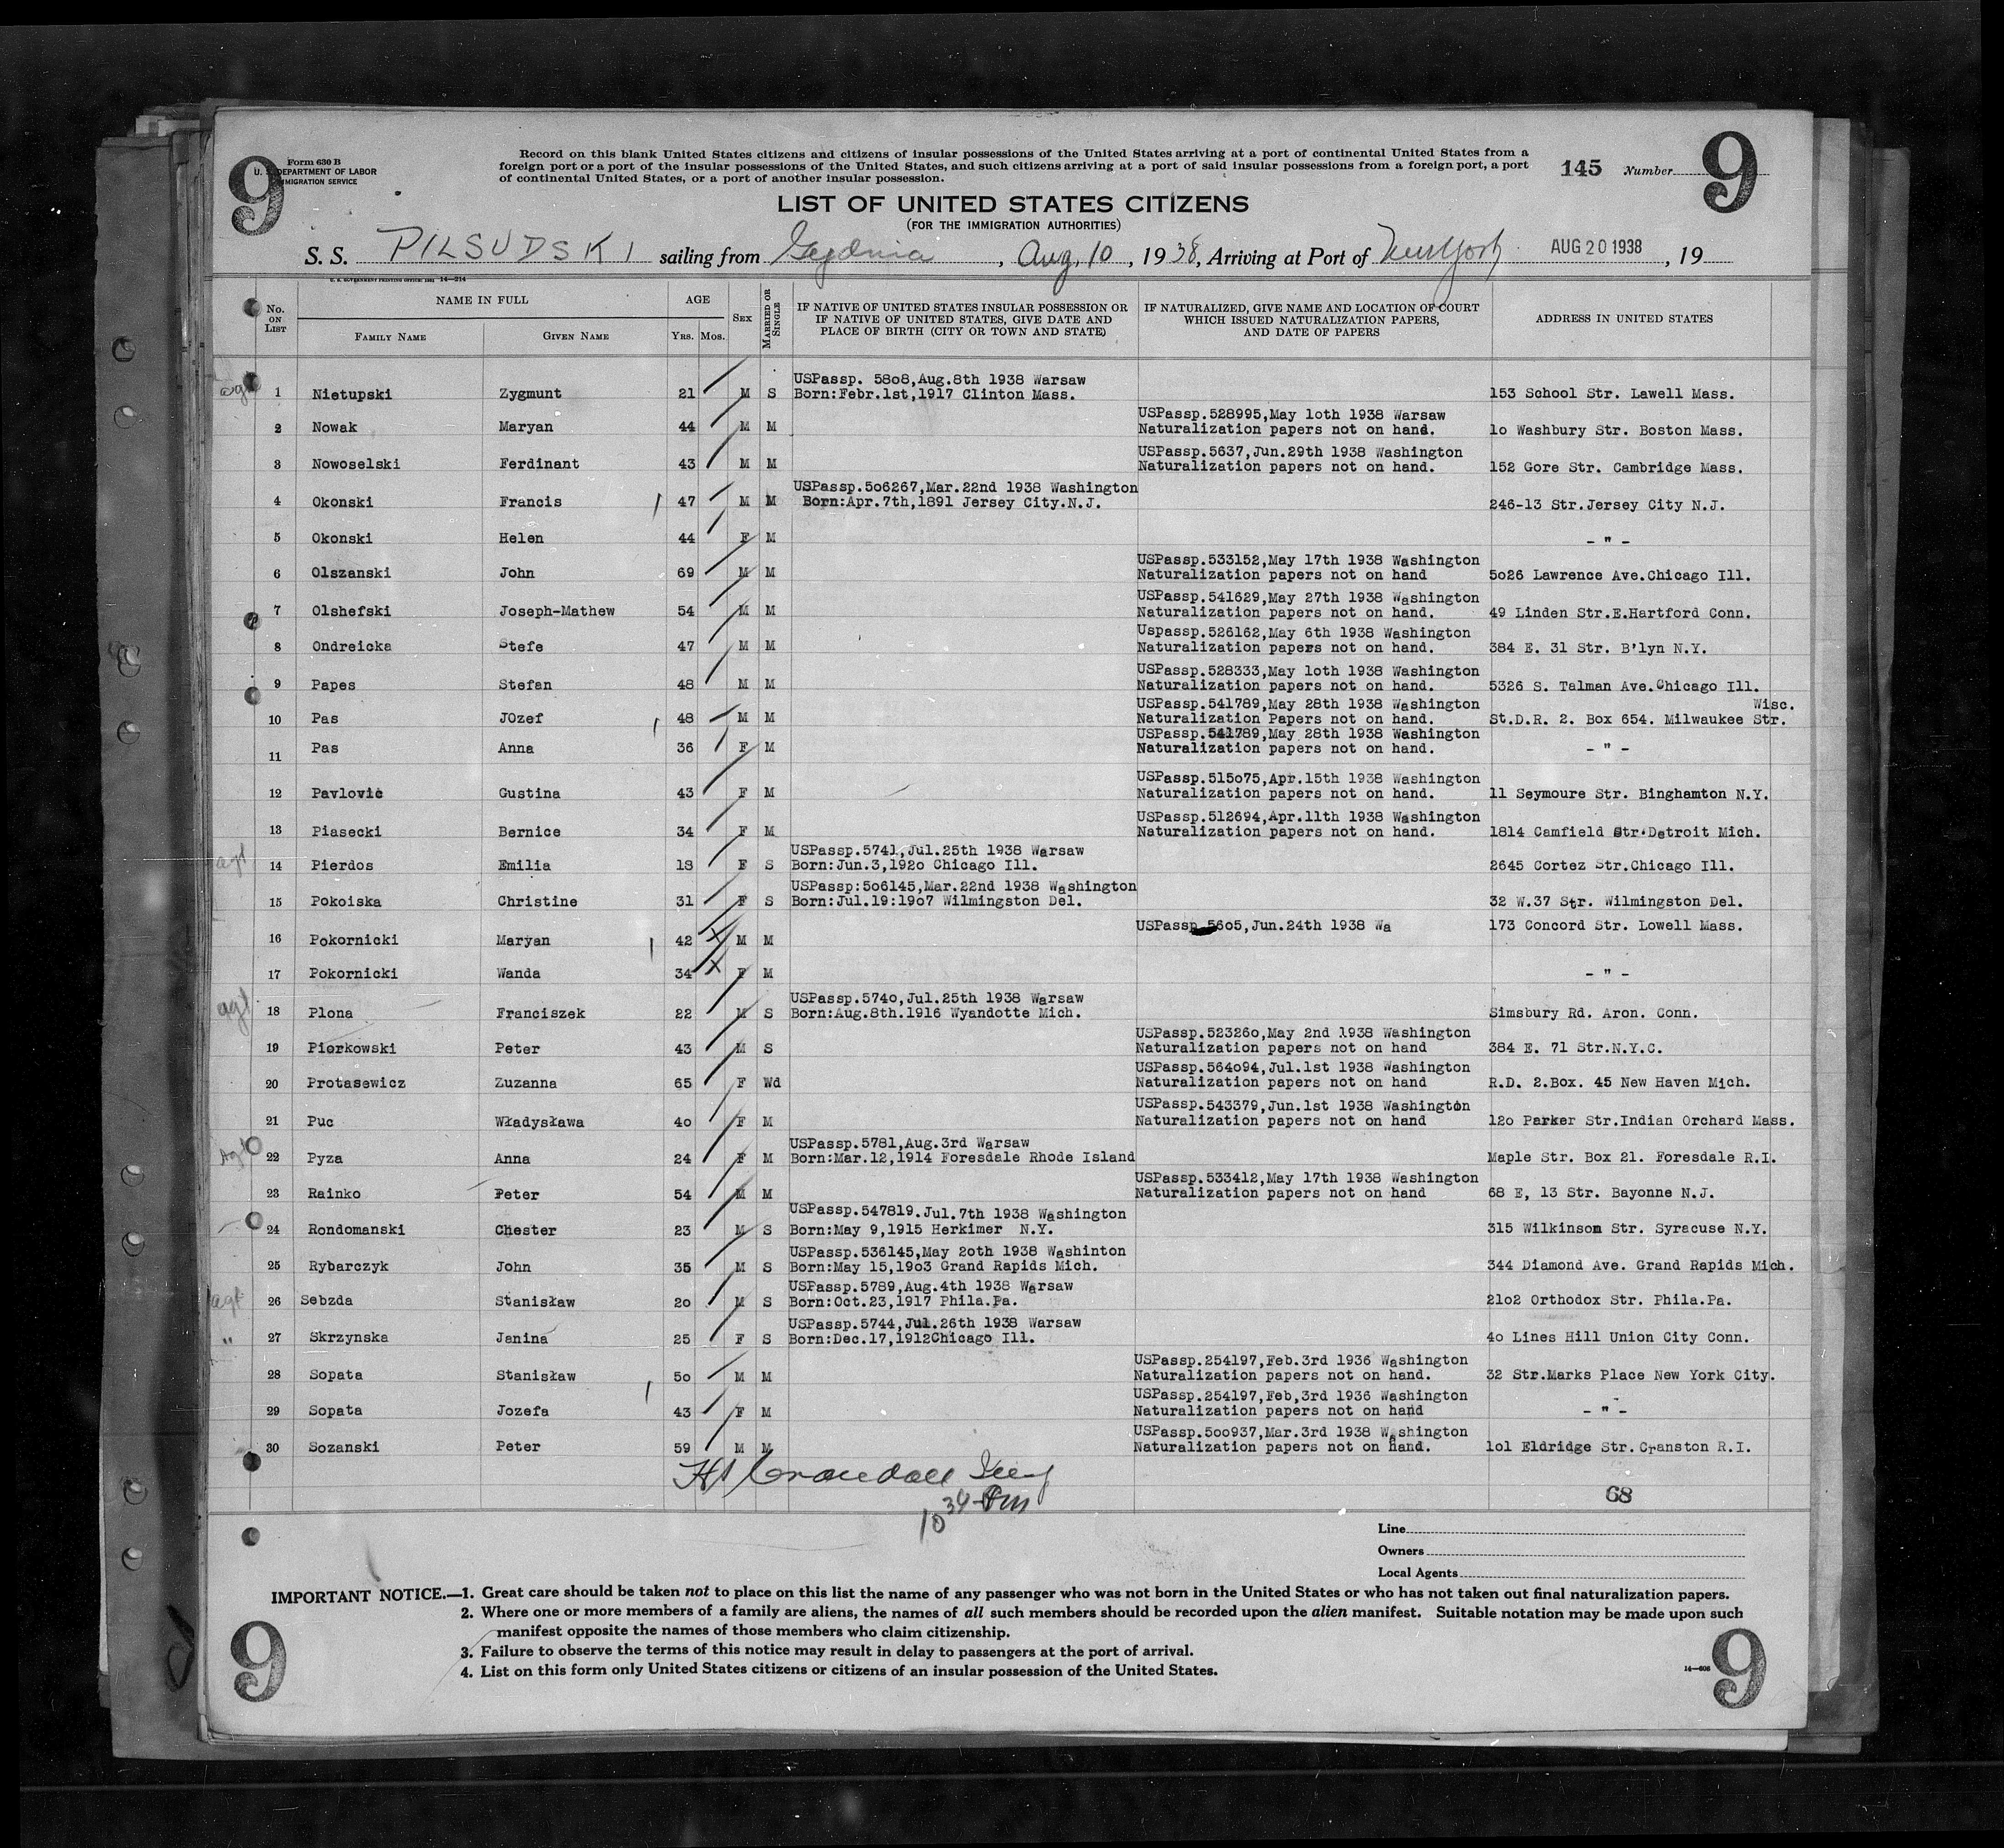 9
Form 630 B
U. S. DEPARTMENT OF LABOR
IMMIGRATION SERVICE
Record on this blank United States citizens and citizens of insular possessions of the United States arriving at a port of continental United States from a
foreign port or a port of the insular possessions of the United States, and such citizens arriving at a port of said insular possessions from a foreign port, a port
of continental United States, or a port of another insular possession.
145 Number
9
LIST OF UNITED STATES CITIZENS
(FOR THE IMMIGRATION AUTHORITIES)
S. S. PILSUDSKI sailing from Gydnia, Aug. 10, 1938, Arriving at Port of New York AUG 20 1938, 19
U. S. GOVERNMENT PRINTING OFFICE: 1931 14—214
No. ON LIST
NAME IN FULL
FAMILY NAME GIVEN NAME
AGE
YRS. MOS.
SEX
MARRIED OR SINGLE
IF NATIVE OF UNITED STATES INSULAR POSSESSION OR
IF NATIVE OF UNITED STATES, GIVE DATE AND
PLACE OF BIRTH (CITY OR TOWN AND STATE)
IF NATURALIZED, GIVE NAME AND LOCATION OF COURT
WHICH ISSUED NATURALIZATION PAPERS,
AND DATE OF PAPERS
ADDRESS IN UNITED STATES
USPassp. 58o8,Aug.8th 1938 Warsaw
agt 1 Nietupski Zygmunt 21 M S Born:Febr.1st,1917 Clinton Mass. 153 School Str. Lawell Mass.
USPassp.528995,May 1oth 1938 Warsaw
2 Nowak Maryan 44 M M Naturalization papers not on hand. 1o Washbury Str. Boston Mass.
USPassp.5637,Jun.29th 1938 Washington
3 Nowoselski Ferdinant 43 M M Naturalization papers not on hand. 152 Gore Str. Cambridge Mass.
USPassp.5o6267,Mar.22nd 1938 Washington
4 Okonski Francis 47 M M Born:Apr.7th,1891 Jersey City.N.J. 246-13 Str.Jersey City N.J.
5 Okonski Helen 44 F M - " -
USPassp.533152,May 17th 1938 Washington
6 Olszanski John 69 M M Naturalization papers not on hand 5o26 Lawrence Ave.Chicago Ill.
USPassp.541629,May 27th 1938 Washington
7 Olshefski Joseph-Mathew 54 M M Naturalization papers not on hand. 49 Linden Str.E.Hartford Conn.
Uspassp.526162,May 6th 1938 Washington
8 Ondreicka Stefe 47 M M Naturalization papers not on hand. 384 E. 31 Str. B'lyn N.Y.
USPassp.528333,May 1oth 1938 Washington
9 Papes Stefan 48 M M Naturalization papers not on hand. 5326 S. Talman Ave.Chicago Ill.
USPassp.541789,May 28th 1938 Washington Wisc.
10 Pas JOzef 48 M M Naturalization Papers not on hand. St.D.R. 2. Box 654. Milwaukee Str.
USPassp.541789,May 28th 1938 Washington
11 Pas Anna 36 F M Naturalization papers not on hand. - " -
USPassp.515o75,Apr.15th 1938 Washington
12 Pavlovic Gustina 43 F M Naturalization papers not on hand. 11 Seymoure Str. Binghamton N.Y.
USPassp.512694,Apr.11th 1938 Washington
13 Piasecki Bernice 34 F M Naturalization papers not on hand. 1814 Camfield Str.Detroit Mich.
USPassp.5741,Jul.25th 1938 Warsaw
agt 14 Pierdos Emilia 18 F S Born:Jun.3,192o Chicago Ill. 2645 Cortez Str.Chicago Ill.
USPassp:5o6145,Mar.22nd 1938 Washington
15 Pokoiska Christine 31 F S Born:Jul.19:19o7 Wilmingston Del. 32 W.37 Str. Wilmingston Del.
USPassp 56o5,Jun.24th 1938 Wa 173 Concord Str. Lowell Mass.
16 Pokornicki Maryan 42 M M
17 Pokornicki Wanda 34 F M - " -
USPassp.574o,Jul.25th 1938 Warsaw
agt 18 Plona Franciszek 22 M S Born:Aug.8th.1916 Wyandotte Mich. Simsbury Rd. Aron. Conn.
USPassp.52326o,May 2nd 1938 Washington
19 Piorkowski Peter 43 M S Naturalization papers not on hand 384 E. 71 Str.N.Y.C.
USPassp.564o94,Jul.1st 1938 Washington
20 Protasewicz Zuzanna 65 F Wd Naturalization papers not on hand R.D. 2.Box. 45 New Haven Mich.
USPassp.543379,Jun.1st 1938 Washington
21 Puc Władysława 4o F M Naturalization papers not on hand 12o Parker Str.Indian Orchard Mass.
USPassp.5781,Aug.3rd Warsaw
Agt 22 Pyza Anna 24 F M Born:Mar.12,1914 Foresdale Rhode Island Maple Str. Box 21. Foresdale R.I.
USPassp.533412,May 17th 1938 Washington
23 Rainko Peter 54 M M Naturalization papers not on hand 68 E, 13 Str. Bayonne N.J.
USPassp.547819.Jul.7th 1938 Washington
24 Rondomanski Chester 23 M S Born:May 9,1915 Herkimer N.Y. 315 Wilkinson Str. Syracuse N.Y.
USPassp.536145,May 2oth 1938 Washinton
25 Rybarczyk John 35 M S Born:May 15,19o3 Grand Rapids Mich. 344 Diamond Ave. Grand Rapids Mich.
USPassp.5789,Aug.4th 1938 Warsaw
agt 26 Sebzda Stanisław 2o M S Born:Oct.23,1917 Phila.Pa. 21o2 Orthodox Str. Phila.Pa.
USPassp.5744,Jul.26th 1938 Warsaw
" 27 Skrzynska Janina 25 F S Born:Dec.17,1912Chicago Ill. 4o Lines Hill Union City Conn.
USPassp.254197,Feb.3rd 1936 Washington
28 Sopata Stanisław 5o M M Naturalization papers not on hand. 32 Str.Marks Place New York City.
USPassp.254197,Feb,3rd 1936 Washington
29 Sopata Jozefa 43 F M Naturalization papers not on hand - " -
USPassp.5oo937,Mar.3rd 1938 Washington
30 Sozanski Peter 59 M M Naturalization papers not on hand. 1o1 Eldridge Str.Cranston R.I.
Crandall
10 34 Pm
68
Line
Owners
Local Agents
IMPORTANT NOTICE.—1. Great care should be taken not to place on this list the name of any passenger who was not born in the United States or who has not taken out final naturalization papers.
2. Where one or more members of a family are aliens, the names of all such members should be recorded upon the alien manifest. Suitable notation may be made upon such
manifest opposite the names of those members who claim citizenship.
3. Failure to observe the terms of this notice may result in delay to passengers at the port of arrival.
4. List on this form only United States citizens or citizens of an insular possession of the United States.
14—606
9
9